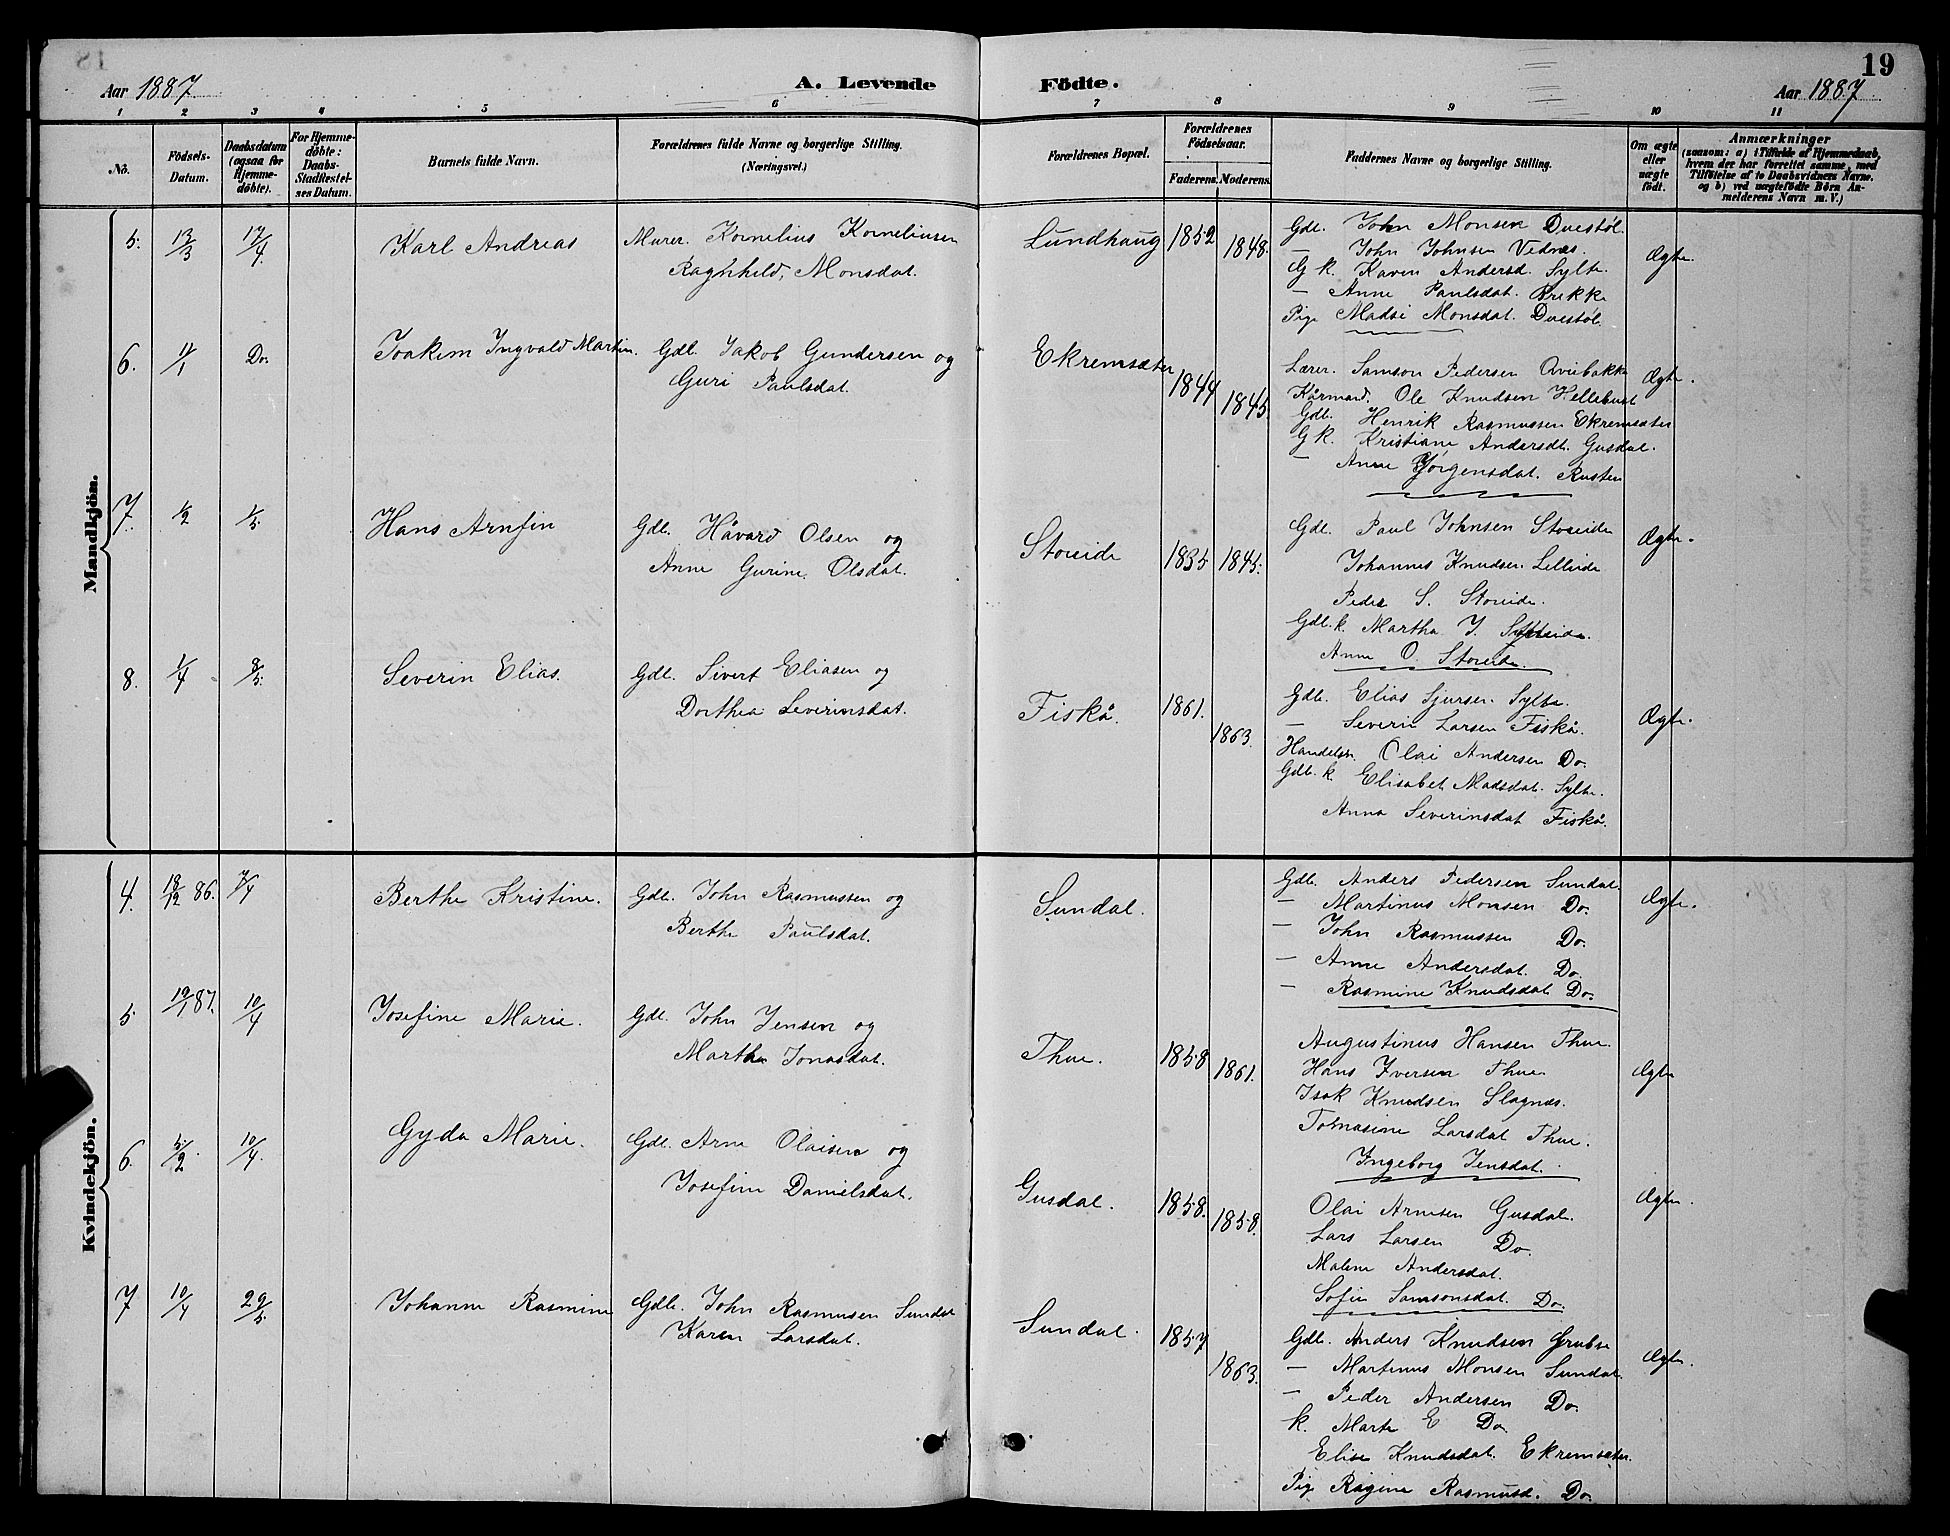 19
Aar 1887
A. Levende Födte.
Aar 1887
1 2 3 4 5 6 7 8 9 10 11
No.
Födsels-Datum.
Daabsdatum (ogsaa for Hjemmedöbte).
For Hjemmedöbte: Daabs-Stadfestelses Datum.
Barnets fulde Navn.
Forældrenes fulde Navne og borgerlige Stilling. (Næringsvei.)
Forældrenes Bopæl.
Forældrenes Födselsaar.
Faderens. Moderens.
Faddernes Navne og borgerlige Stilling.
Om ægte eller uægte födt.
Anmærkninger
(saasom: a) i Tilfælde af Hjemmedaab, hvem der har forrettet samme, med Tilföielse af to Daabsvidners Navne, og b) ved uægtefödte Börn Anmelderens Navn m. V.)
Mandkjön.
5. 13/3 17/4. Karl Andreas
Murer. Kornelius Korneliusen
Ragnhild, Monsdat.
Lundhaug 1852 1848.
Gdb. John Monsen Duestöl.
— John Johnsen Vednæs.
G k. Karen Andersd. Sylte.
— Anne Paulsdat. Brekke
Pige Madsi Monsdat. Duestöl.
Ægte.
6. 11/1 Do. Joakim Ingvald Martin.
Gdb. Jakob Gundersen og
Guri Paulsdat.
Ekremsæter 1844 1845.
Lærer. Samson Pedersen Qvibakke
Kårmand. Ole Knudsen Hellebust
Gdb. Henrik Rasmussen Ekremsæter
G k. Kristiane Andersdt. Gusdal.
— Anne Jörgensdat. Rusten
Ægte.
7. 1/2 1/5. Hans Arnfin
Gdb. Håvard Olsen og
Anne Gurine Olsdat.
Storeide 1835 1845.
Gdb. Paul Johnsen Storeide
Johannes Knudsen Lilleeide
Peder S. Storeide.
Gdb. k. Martha J. Sylteeide.
Anne O. Storeide.
Ægte.
8. 1/4 8/5. Severin Elias.
Gdb. Sivert Eliasen og
Dorthea Severinsdat.
Fiskå. 1861. 1863.
Gdb. Elias Sjursen Sylte.
— Severin Larsen Fiskå.
Handelsm. Olai Andersen Do.
Gdb. k. Elisabet Madsdat. Sylte.
Anna Severinsdat Fiskå.
Ægte.
Kvindekjön.
4. 18/12 86. 7/4 Berthe Kristine.
Gdb. John Rasmussen og
Berthe Paulsdat.
Sundal.
Gdb. Anders Pedersen Sundal.
— Martinus Monsen Do.
— John Rasmussen Do.
— Anne Andersdat. Do.
— Rasmine Knudsdat Do.
Ægte.
5. 19/1 87. 10/4 Josefine Marie.
Gdb. John Jensen og
Marthe Jonasdat.
Thue. 1858 1861.
Augustinus Hansen Thue.
Hans Iversen Thue
Isak Knudsen Slagnæs.
Tomasine Larsdat Thue.
Ingeborg Jensdat.
Ægte
6. 5/2. 10/4. Gyda Marie.
Gdb. Arne Olaisen og
Josefine Danielsdat.
Gusdal. 1858. 1858.
Olai Arnesen Gusdal.
Lars Larsen Do.
Malene Andersdat.
Sofie Samsonsdat. Do.
Ægte.
7 10/4 29/5. Johanne Rasmine
Gdb. John Rasmusen Sundal
Karen Larsdat.
Sundal. 1857 1863.
Gdb. Anders Knudsen Grubse
— Martinus Monsen Sundal.
— Peder Andersen Do.
k. Marte E Do.
Elise Knudsdat. Ekremsæter.
Pige Ragine Rasmusd. Do.
Ægte.